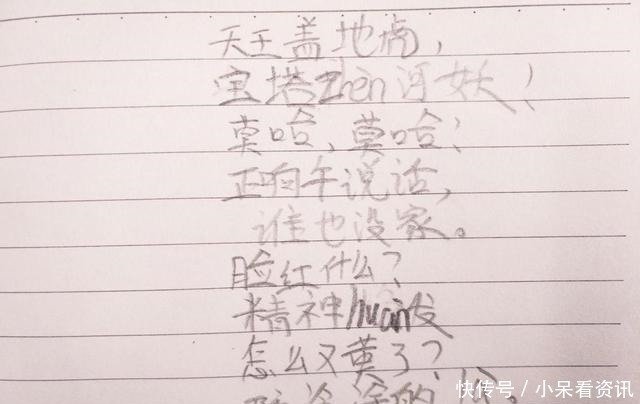 天王盖地虎，
宝塔zhèn河妖！
莫哈，莫哈！
正晌午说话，
谁也没家。
脸红什么？
精神huàn发
怎么又黄了？
涂的
快传号／小呆看资讯